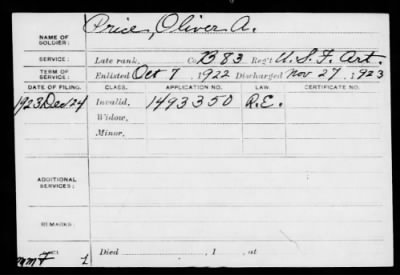 NAME OF SOLDIER: Price, Oliver A.
SERVICE: Late rank, Co. B 83 Reg't U.S.F. Art.
TERM OF SERVICE: Enlisted Oct 7, 1922 Discharged Nov 27, 1923
DATE OF FILING. CLASS. APPLICATION NO. LAW. CERTIFICATE NO.
1923 Dec 24 Invalid, 1493350 R.E.
Widow,
Minor,
ADDITIONAL SERVICES:
REMARKS:
Died , 1 , at
1